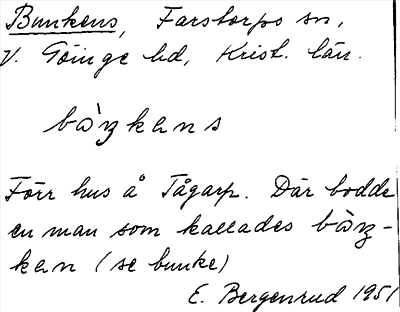 Bunkens, Farstorps sn,
V. Göinge hd, Krist. län.
bàŋkens
Förr hus å Tågarp. Där bodde
en man som kallades bàŋ-
ken (se bunke)
E. Bergenrud 1951